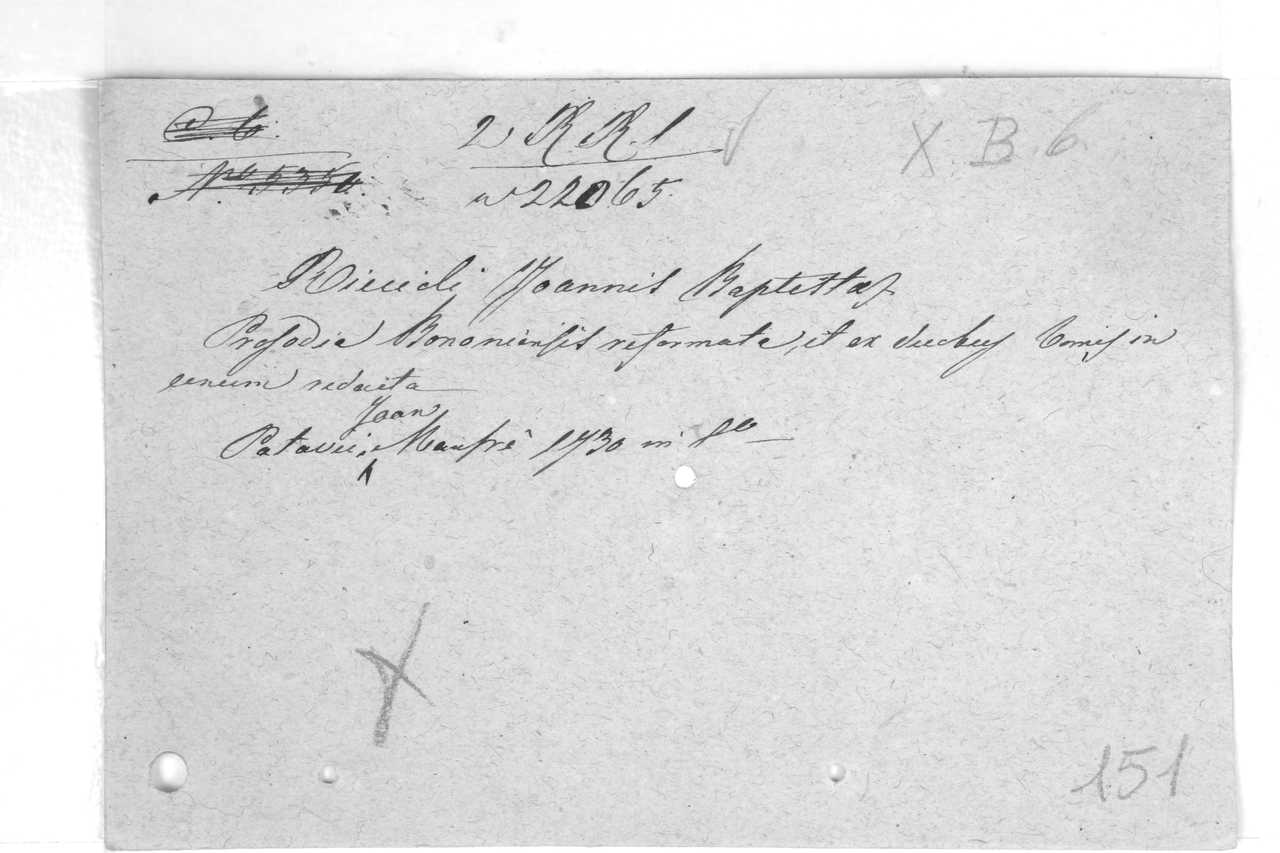 2 R R. 1
X B. 6.
n 22065.
Riccioli Joannis Baptistae
Prosodia Bononiensis reformata, et ex duobus Tomis in
unum redacta
Joan
Patavii, Manfrè 1730 in 8º
151